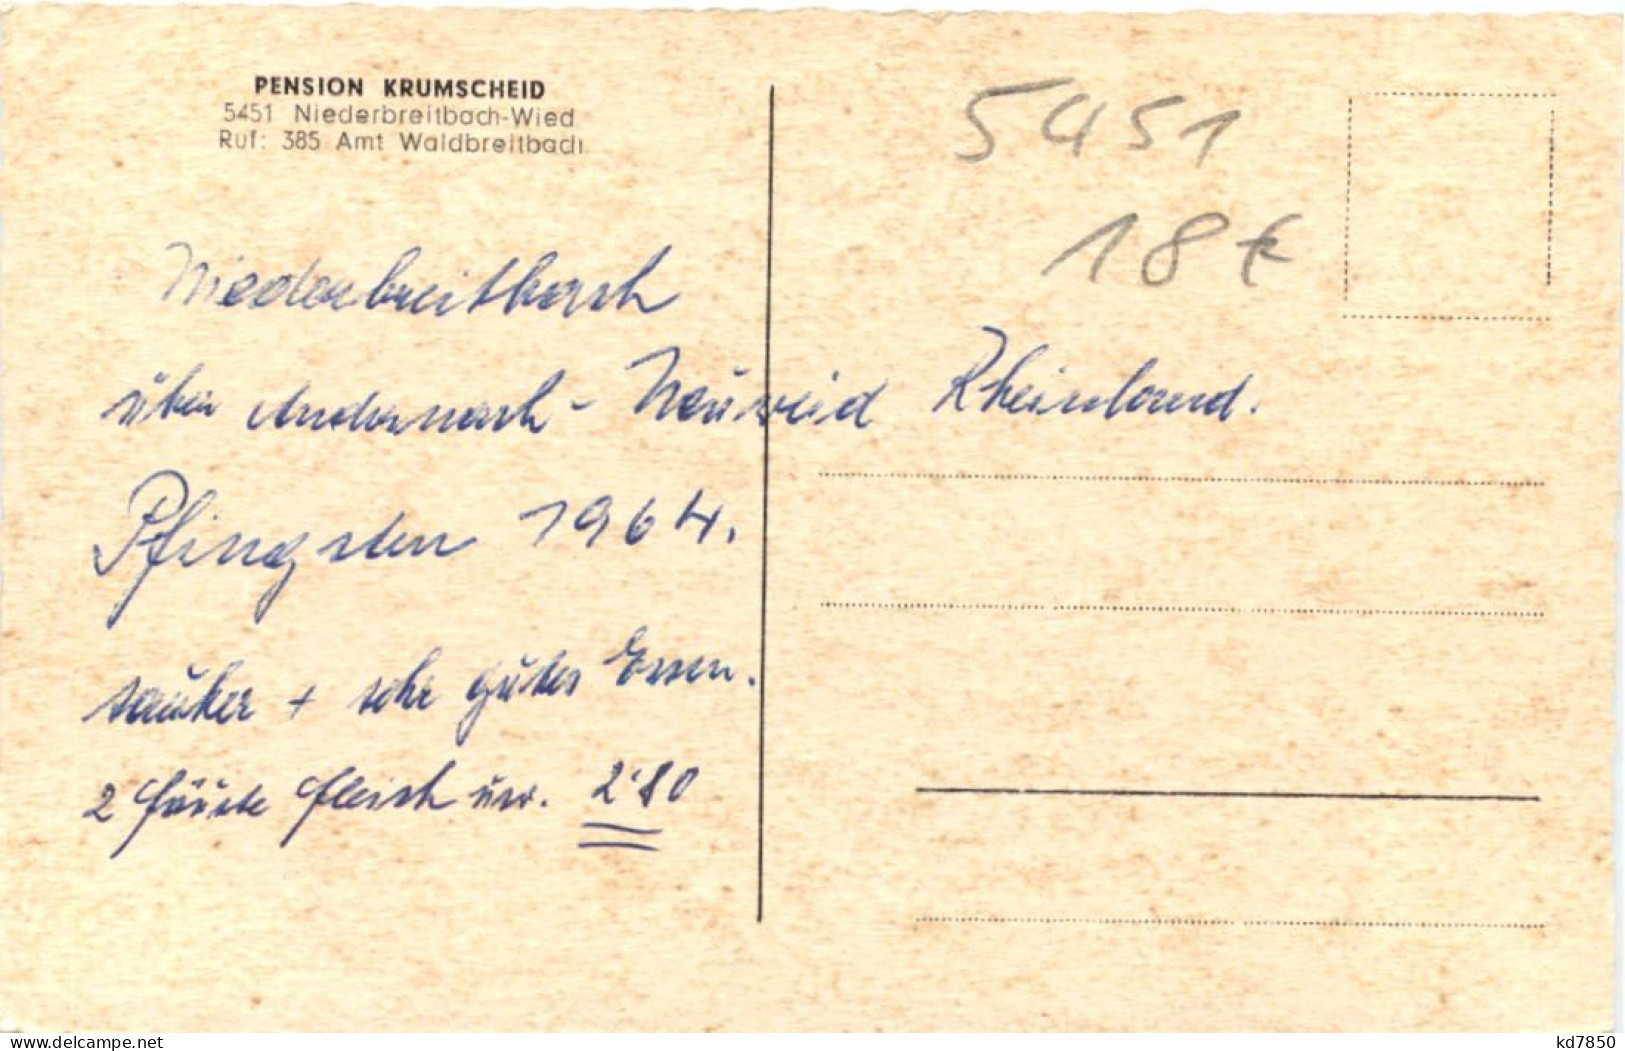 PENSION KRUMSCHEID
5451 Niederbreitbach-Wied
Ruf: 385 Amt Waldbreitbach
5451
18 €
Niederbreitbach
über Andernach - Neuwied Rheinland.
Pfingsten 1964.
sauber + sehr gutes Essen.
2 Fleisch usw. 2'80
www.delcampe.net
kd7850